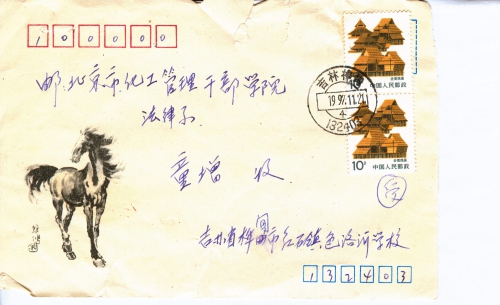 100000
邮:北京市化工管理干部学院
法律系
童增 收
吉林省桦甸市红石镇色洛河学校
132403
吉林桦甸
1997.11.21
4
132403
中国人民邮政
10分
中国人民邮政